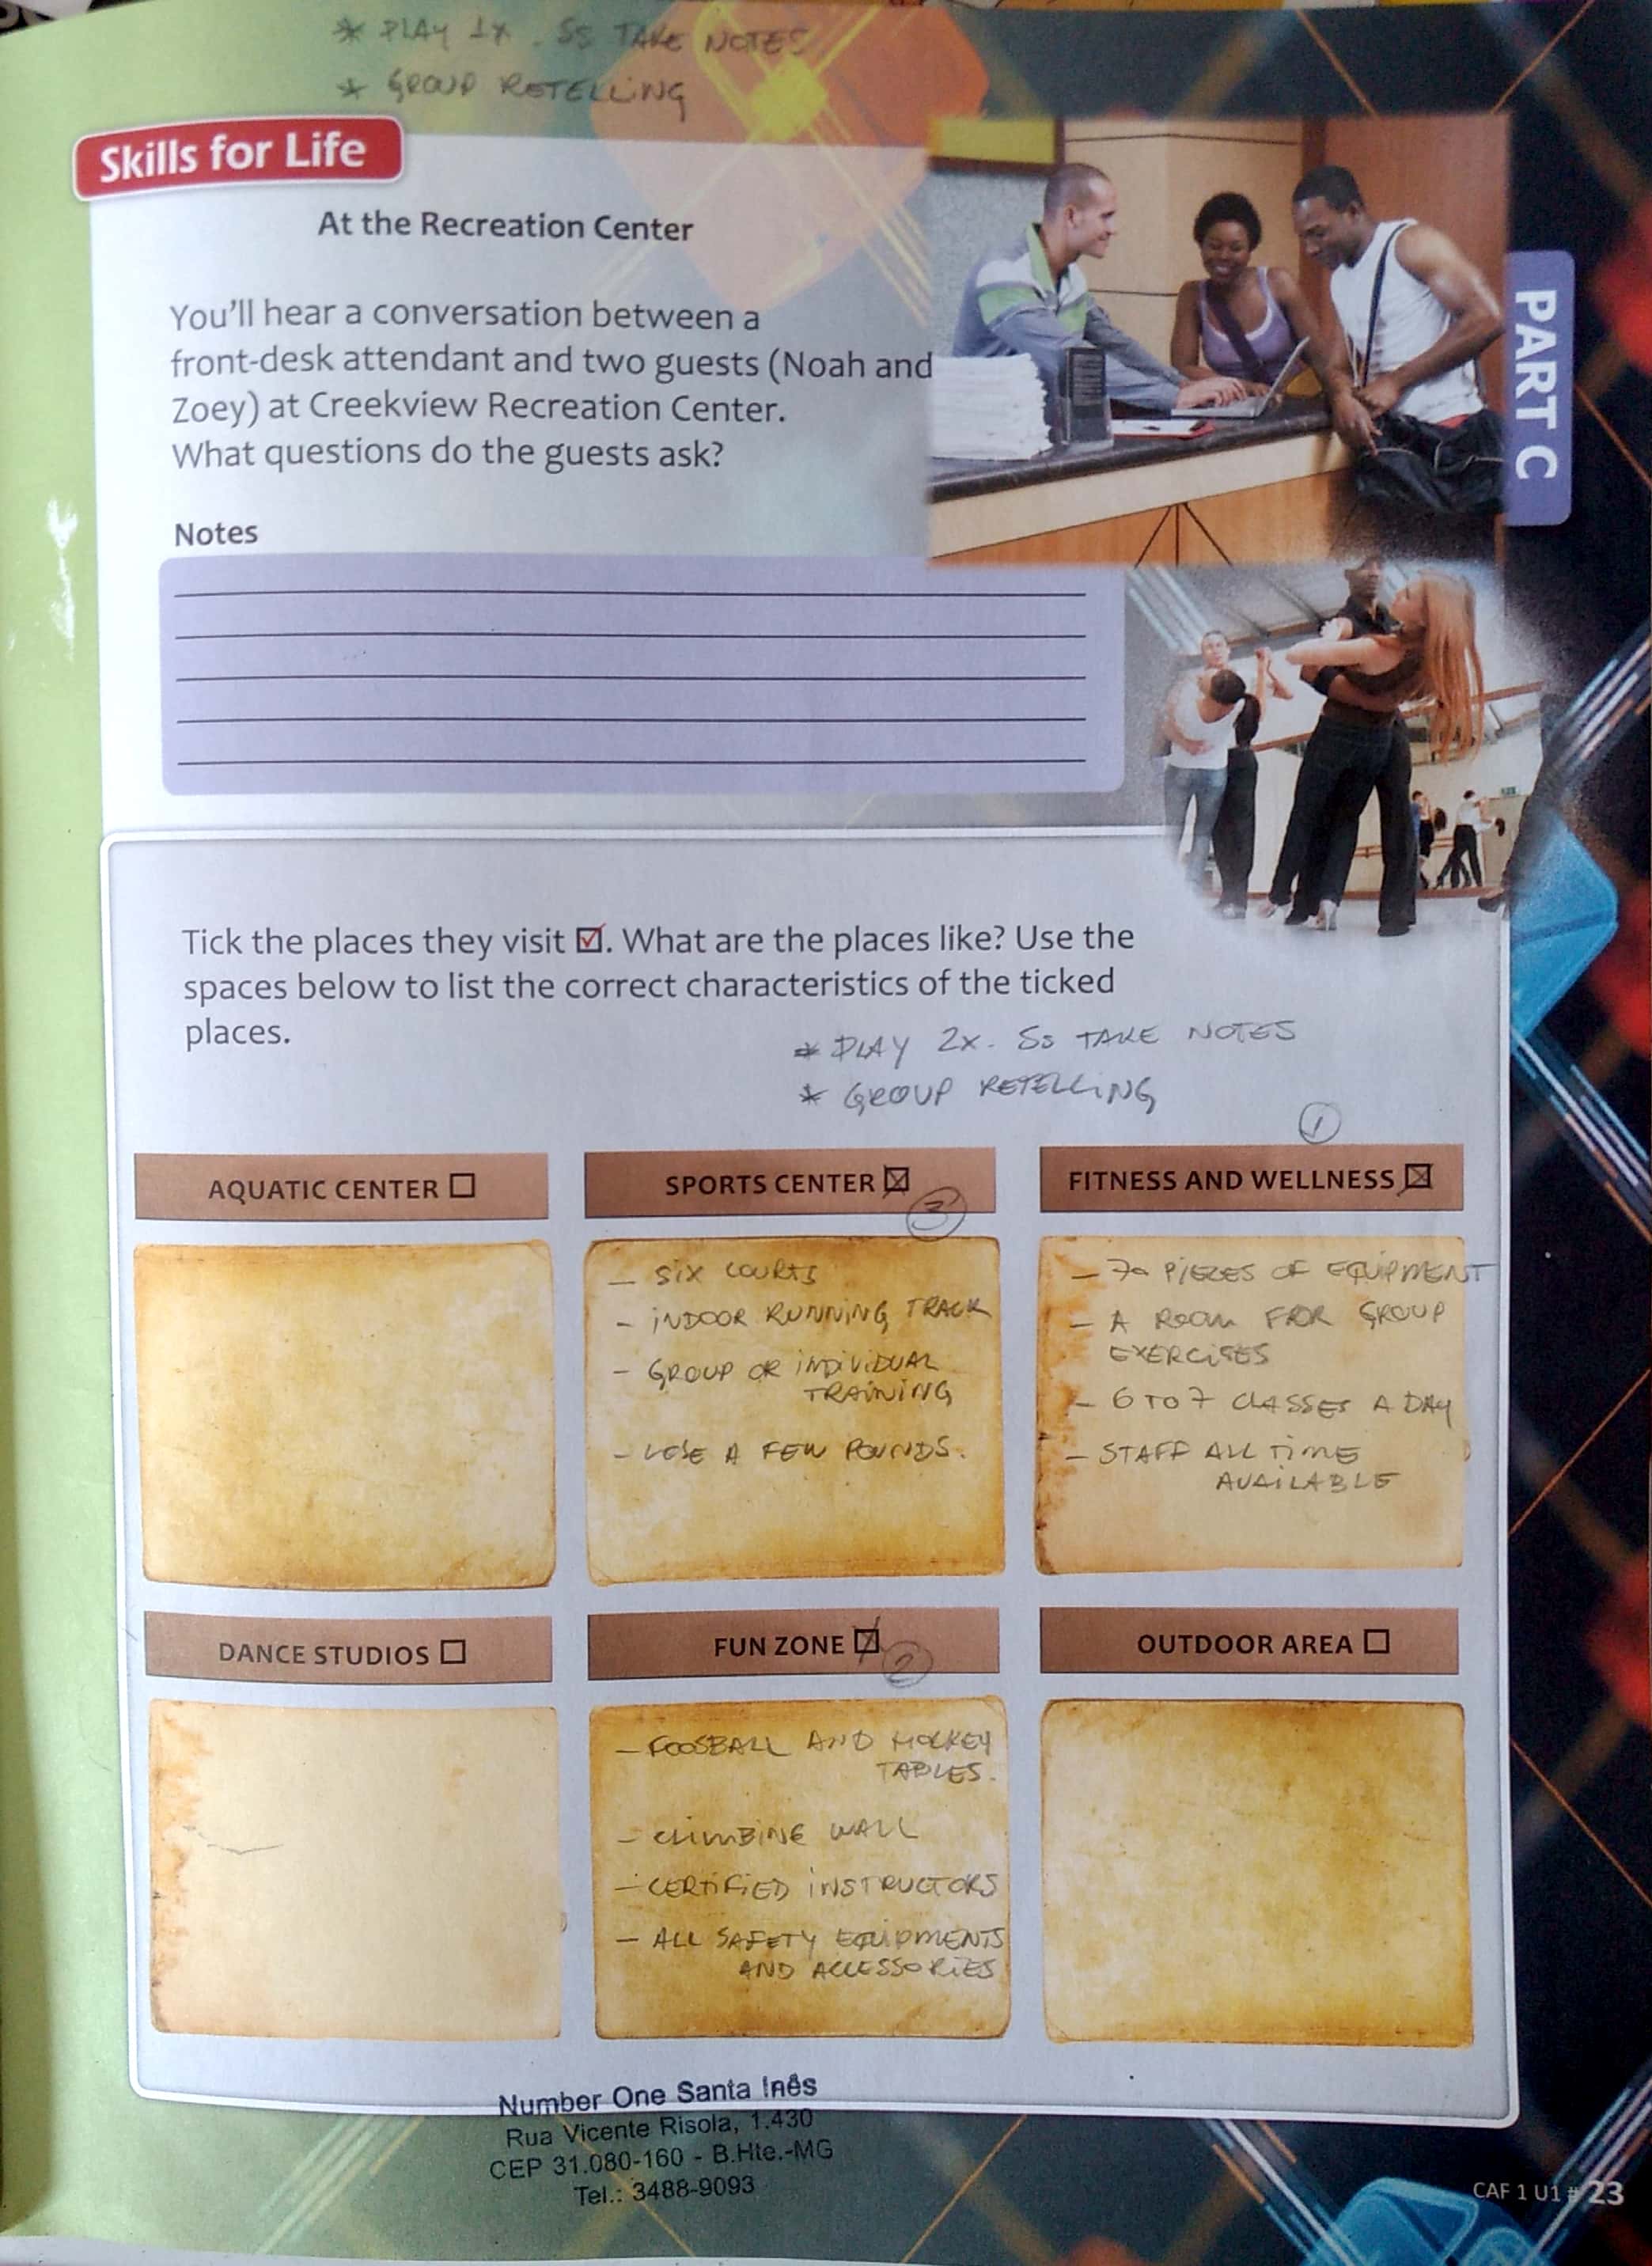 * PLAY 1X. Ss TAKE NOTES
* GROUP RETELLING
Skills for Life
At the Recreation Center
You'll hear a conversation between a
front-desk attendant and two guests (Noah and
Zoey) at Creekview Recreation Center.
What questions do the guests ask?
PART C
Notes
Tick the places they visit ☑. What are the places like? Use the
spaces below to list the correct characteristics of the ticked
places.
* PLAY 2X. Ss TAKE NOTES
* GROUP RETELLING
AQUATIC CENTER ☐
SPORTS CENTER ☒
3
- SIX COURTS
- INDOOR RUNNING TRACK
- GROUP OR INDIVIDUAL
TRAINING
- LOSE A FEW POUNDS.
1
FITNESS AND WELLNESS ☒
- 70 PIECES OF EQUIPMENT
- A ROOM FOR GROUP
EXERCISES
- 6 TO 7 CLASSES A DAY
- STAFF ALL TIME
AVAILABLE
DANCE STUDIOS ☐
FUN ZONE ☒
2
- FOOSBALL AND HOCKEY
TABLES.
- CLIMBING WALL
- CERTIFIED INSTRUCTORS
- ALL SAFETY EQUIPMENTS
AND ACCESSORIES
OUTDOOR AREA ☐
Number One Santa Inês
Rua Vicente Risola, 1.430
CEP 31.080-160 - B.Hte.-MG
Tel.: 3488-9093
CAF 1 U1 # 23